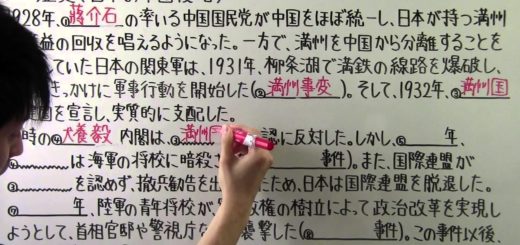 928年、①蔣介石の率いる中国国民党が中国をほぼ統一し、日本が持つ満州
益の回収を唱えるようになった。一方で、満州を中国から分離することを
ていた日本の関東軍は、1931年、柳条湖で満鉄の線路を爆破し、
きっかけに軍事行動を開始した(②満州事変)。そして、1932年、③満州国
国を宣言し、実質的に支配した。
時の④犬養毅 内閣は、③満州 認に反対した。しかし、⑤ 年、
は海軍の将校に暗殺さ 事件)。また、国際連盟が
③ を認めず、撤兵勧告を出 ため、日本は国際連盟を脱退した。
⑦ 年、陸軍の青年将校が 政権の樹立によって政治改革を実現し
ようとして、首相官邸や警視庁な 襲撃した(⑧ 事件)。この事件以後、